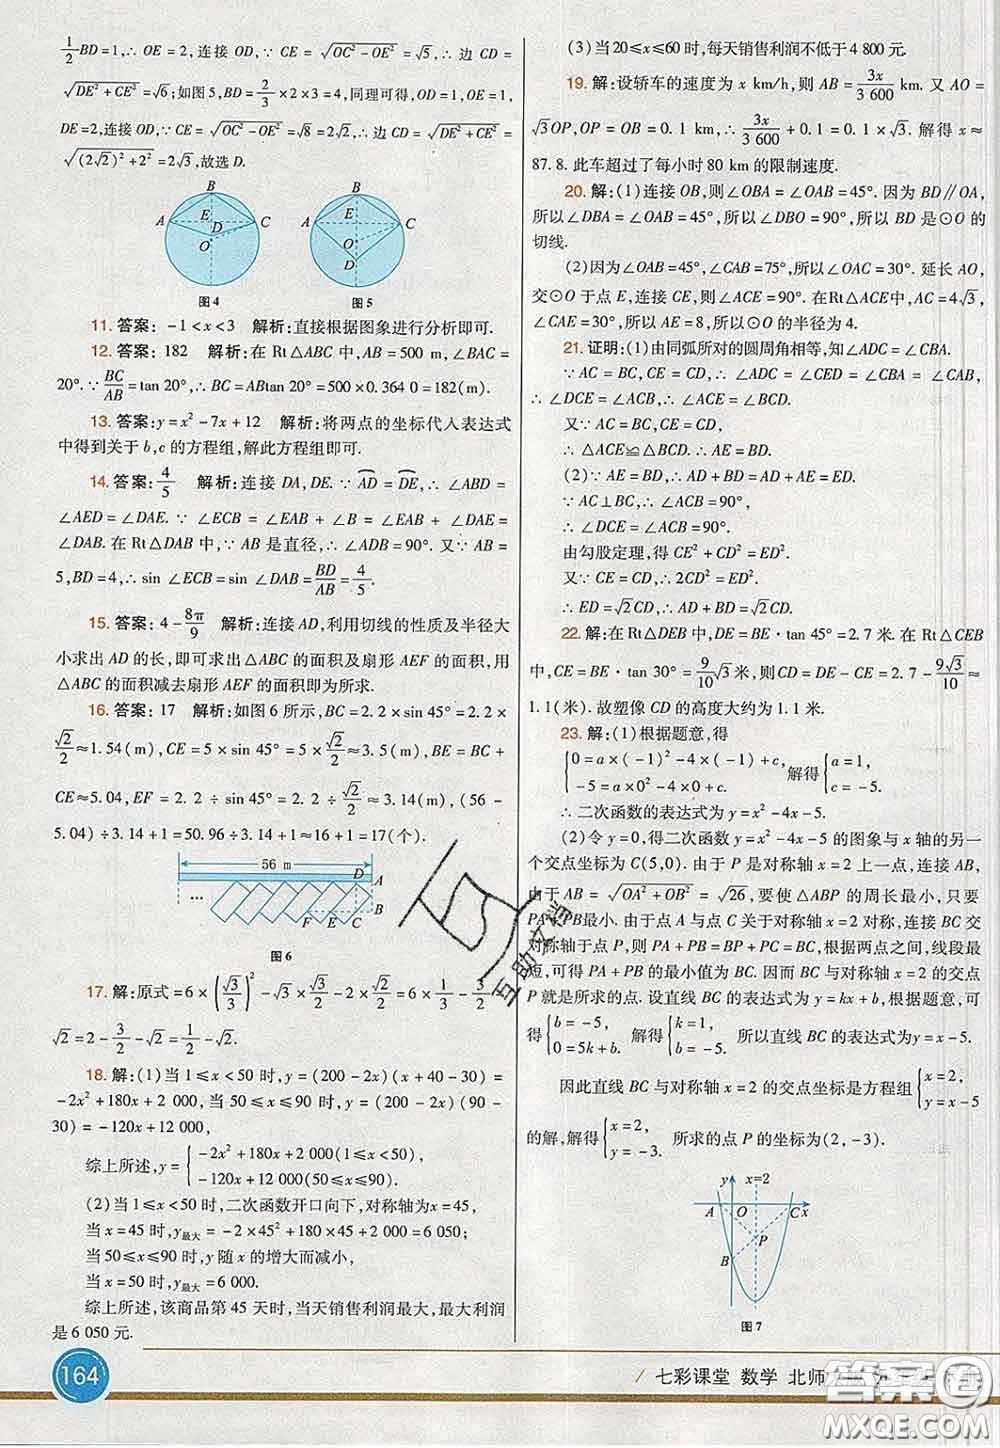 ½BD=1,∴OE=2,连接OD,∵CE=√(OC²-OE²)=√5,∴边CD=
√(DE²+CE²)=√6;如图5,BD=2/3×2×3=4,同理可得,OD=1,OE=1,
DE=2,连接OD,∵CE=√(OC²-OE²)=√8=2√2,∴边CD=√(DE²+CE²)=
√((2√2)²+2²)=2√3,故选D.
B
A E C
D
O
图4
B
A E C
O
D
图5
11.答案:-1<x<3 解析:直接根据图象进行分析即可.
12.答案:182 解析:在Rt△ABC中,AB=500 m,∠BAC=
20°.∵BC/AB=tan 20°,∴BC=ABtan20°=500×0.364 0=182(m).
13.答案:y=x²-7x+12 解析:将两点的坐标代入表达式
中得到关于b,c的方程组,解此方程组即可.
14.答案:4/5 解析:连接DA,DE.∵⌒AD=⌒DE,∴∠ABD=
∠AED=∠DAE.∵∠ECB=∠EAB+∠B=∠EAB+∠DAE=
∠DAB.在Rt△DAB中,∵AB是直径,∴∠ADB=90°.又∵AB=
5,BD=4,∴sin ∠ECB=sin ∠DAB=BD/AB=4/5.
15.答案:4-8π/9 解析:连接AD,利用切线的性质及半径大
小求出AD的长,即可求出△ABC的面积及扇形AEF的面积,用
△ABC的面积减去扇形AEF的面积即为所求.
16.答案:17 解析:如图6所示,BC=2.2×sin 45°=2.2×
√2/2≈1.54(m),CE=5×sin 45°=5×√2/2≈3.5(m),BE=BC+
CE≈5.04,EF=2.2÷sin 45°=2.2÷√2/2≈3.14(m),(56-
5.04)÷3.14+1=50.96÷3.14+1≈16+1=17(个).
56 m
D A
… …
F E C B
图6
17.解:原式=6×(√3/3)²-√3×√3/2-2×√2/2=6×1/3-3/2-
√2=2-3/2-√2=1/2-√2.
18.解:(1)当1≤x<50时,y=(200-2x)(x+40-30)=
-2x²+180x+2 000,当50≤x≤90时,y=(200-2x)(90-
30)=-120x+12 000,
综上所述,y={-2x²+180x+2 000(1≤x<50),
-120x+12 000(50≤x≤90).
(2)当1≤x<50时,二次函数开口向下,对称轴为x=45,
当x=45时,y最大=-2×45²+180×45+2 000=6 050;
当50≤x≤90时,y随x的增大而减小,
当x=50时,y最大=6 000.
综上所述,该商品第45天时,当天销售利润最大,最大利润
是6 050元.
(3)当20≤x≤60时,每天销售利润不低于4 800元.
19.解:设轿车的速度为x km/h,则AB=3x/3 600 km.又AO=
√3OP,OP=OB=0.1 km,∴3x/3 600+0.1=0.1×√3.解得x≈
87.8.此车超过了每小时80 km的限制速度.
20.解:(1)连接OB,则∠OBA=∠OAB=45°.因为BD∥OA,
所以∠DBA=∠OAB=45°,所以∠DBO=90°,所以BD是⊙O的
切线.
(2)因为∠OAB=45°,∠CAB=75°,所以∠OAC=30°.延长AO,
交⊙O于点E,连接CE,则∠ACE=90°.在Rt△ACE中,AC=4√3,
∠CAE=30°,所以AE=8,所以⊙O的半径为4.
21.证明:(1)由同弧所对的圆周角相等,知∠ADC=∠CBA.
∵AC=BC,CE=CD,∴∠ADC=∠CED=∠CBA=∠CAB,
∴∠DCE=∠ACB,∴∠ACE=∠BCD.
又∵AC=BC,CE=CD,
∴△ACE≌△BCD.∴AE=BD.
(2)∵AE=BD,∴AD+BD=AD+AE=ED.
∵AC⊥BC,∴∠ACB=90°,
∴∠DCE=∠ACB=90°.
由勾股定理,得CE²+CD²=ED².
又∵CE=CD,∴2CD²=ED².
∴ED=√2CD,∴AD+BD=√2CD.
22.解:在Rt△DEB中,DE=BE·tan 45°=2.7米.在Rt△CEB
中,CE=BE·tan 30°=9/10√3米,则CD=DE-CE=2.7-9√3/10≈
1.1(米).故塑像CD的高度大约为1.1米.
23.解:(1)根据题意,得
{0=a×(-1)²-4×(-1)+c,
-5=a×0²-4×0+c. 解得{a=1,
c=-5.
∴二次函数的表达式为y=x²-4x-5.
(2)令y=0,得二次函数y=x²-4x-5的图象与x轴的另一
个交点坐标为C(5,0).由于P是对称轴x=2上一点,连接AB,
由于AB=√(OA²+OB²)=√26,要使△ABP的周长最小,只要
PA+PB最小.由于点A与点C关于对称轴x=2对称,连接BC交
对称轴于点P,则PA+PB=BP+PC=BC,根据两点之间,线段最
短,可得PA+PB的最小值为BC.因而BC与对称轴x=2的交点
P就是所求的点.设直线BC的表达式为y=kx+b,根据题意,可
得{b=-5,
0=5k+b. 解得{k=1,
b=-5. 所以直线BC的表达式为y=x-5.
因此直线BC与对称轴x=2的交点坐标是方程组{x=2,
y=x-5
的解,解得{x=2,
y=-3. 所求的点P的坐标为(2,-3).
y x=2
A O C x
P
B
图7
互助文档
164
七彩课堂 数学 北师
答案圈
MXQE.COM